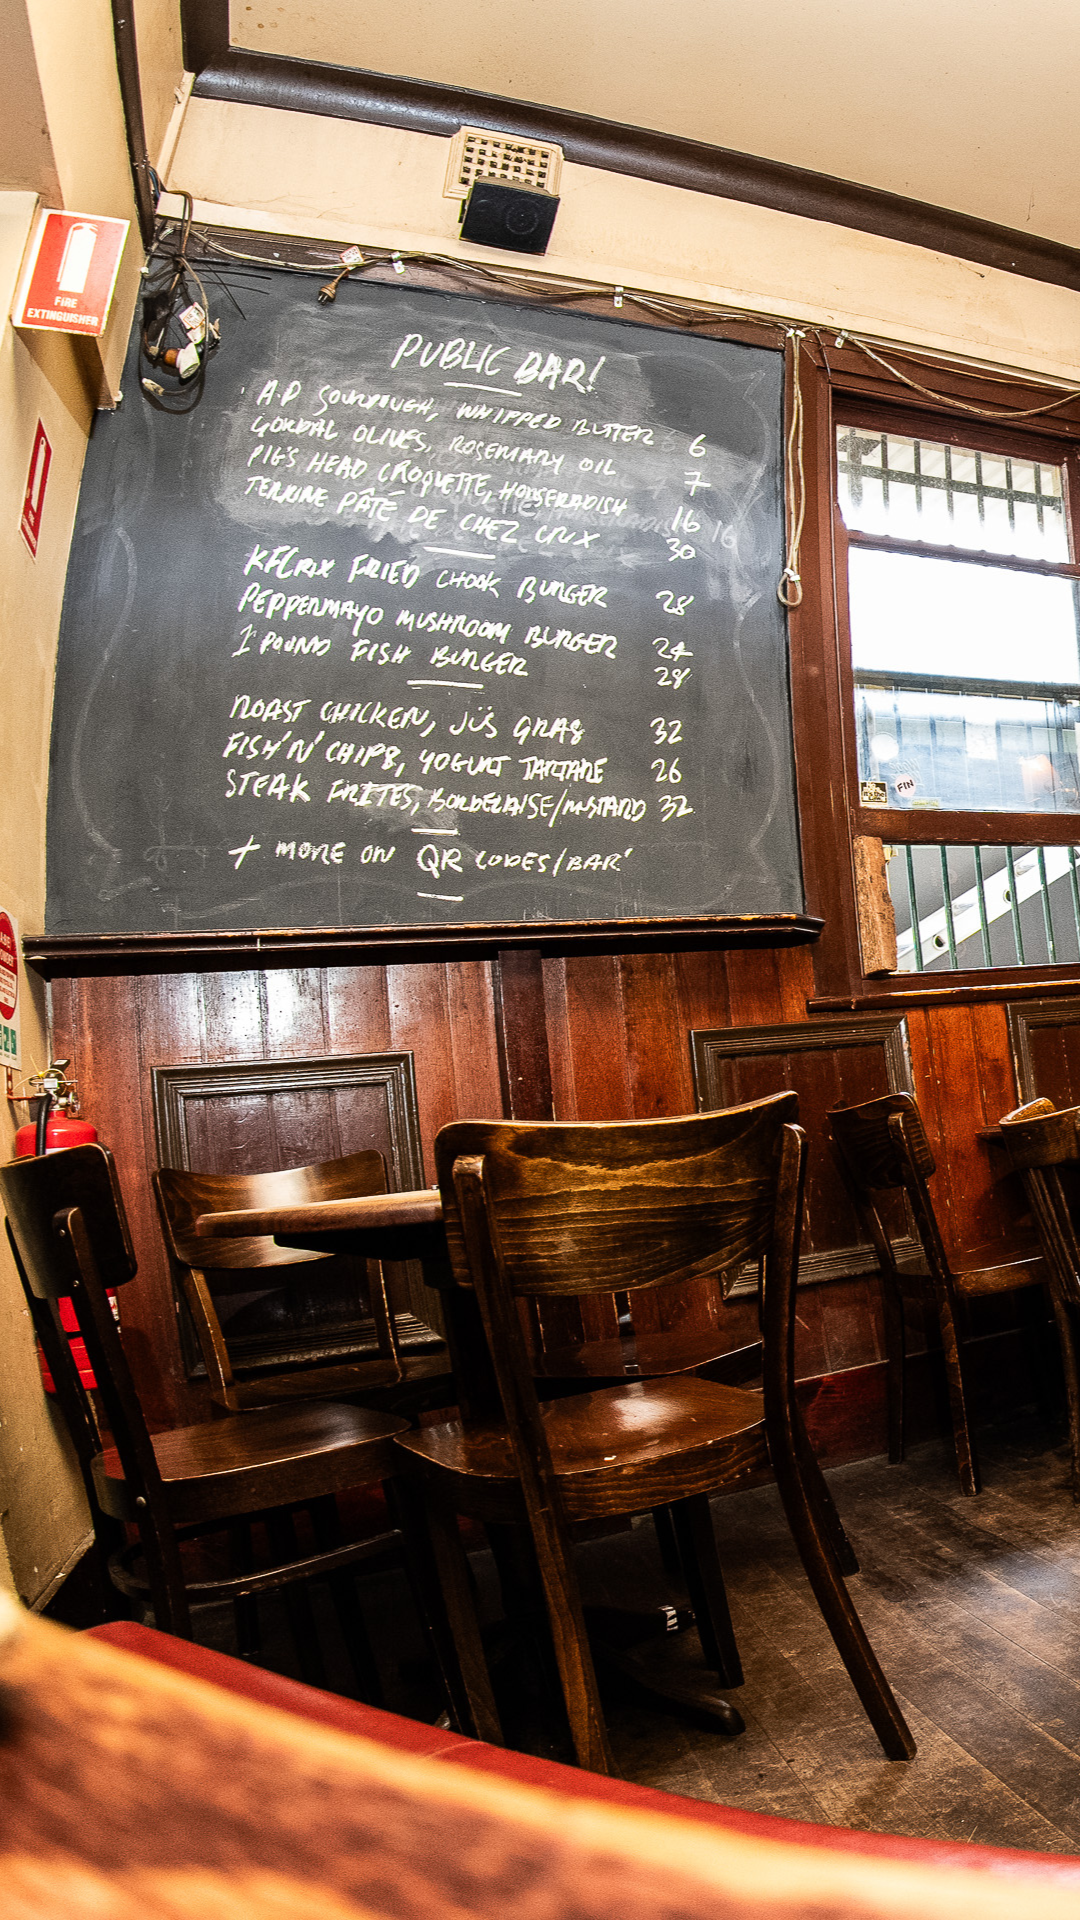 FIRE
EXTINGUISHER
PUBLIC BAR!
A.P SOURDOUGH, WHIPPED BUTTER 6
GORDAL OLIVES, ROSEMARY OIL 7
PIG'S HEAD CROQUETTE, HORSERADISH 16
TERRINE PÂTÉ DE CHEZ CRIX 30
KFCRIX FRIED CHOOK BURGER 28
PEPPERMAYO MUSHROOM BURGER 24
1 POUND FISH BURGER 28
ROAST CHICKEN, JÜS GRAS 32
FISH 'N' CHIPS, YOGURT TARTARE 26
STEAK FRITES, BORDERAISE/MUSTARD 32
+ MORE ON QR CODES/BAR
FIN